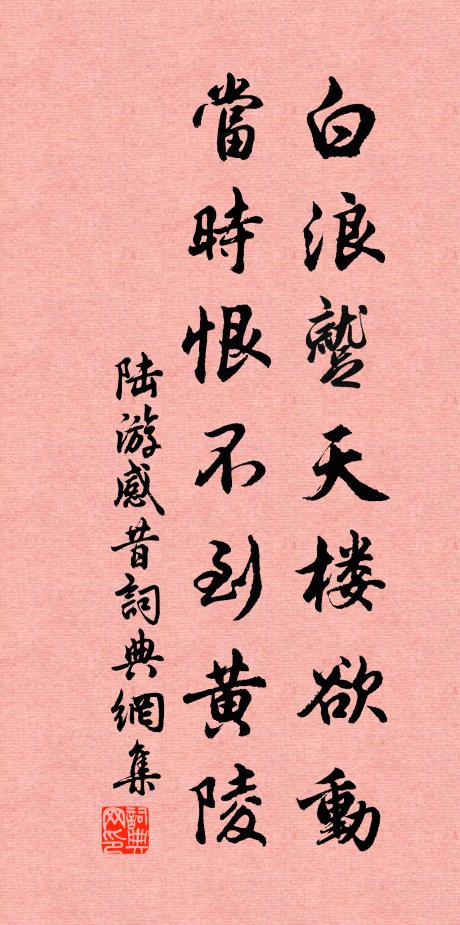 白浪蹵天楼欲動
當時恨不到黄陵
陆游感昔詞典網集
詞典网印